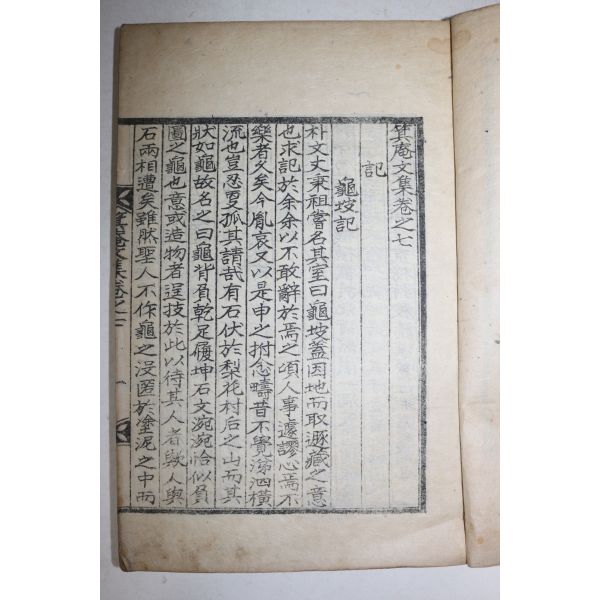 箕庵文集卷之七
記
龜坡記
朴文丈秉祖嘗名其室曰龜坡蓋因地而取遯藏之意
也求記於余余以不敢辭於焉之頃人事遽謬心焉不
樂者久矣今胤哀又以是申之拊念疇昔不覺涕泗橫
流也豈忍孤其請哉有石伏於梨花村后之山而其
狀如龜故名之曰龜背負乾足履坤石文宛宛恰似負
圖之龜也意或造物者逞技於此以待其人者歟人與
石兩相遭矣雖然聖人不作龜之沒匿於塗泥之中而
箕庵文集卷之七